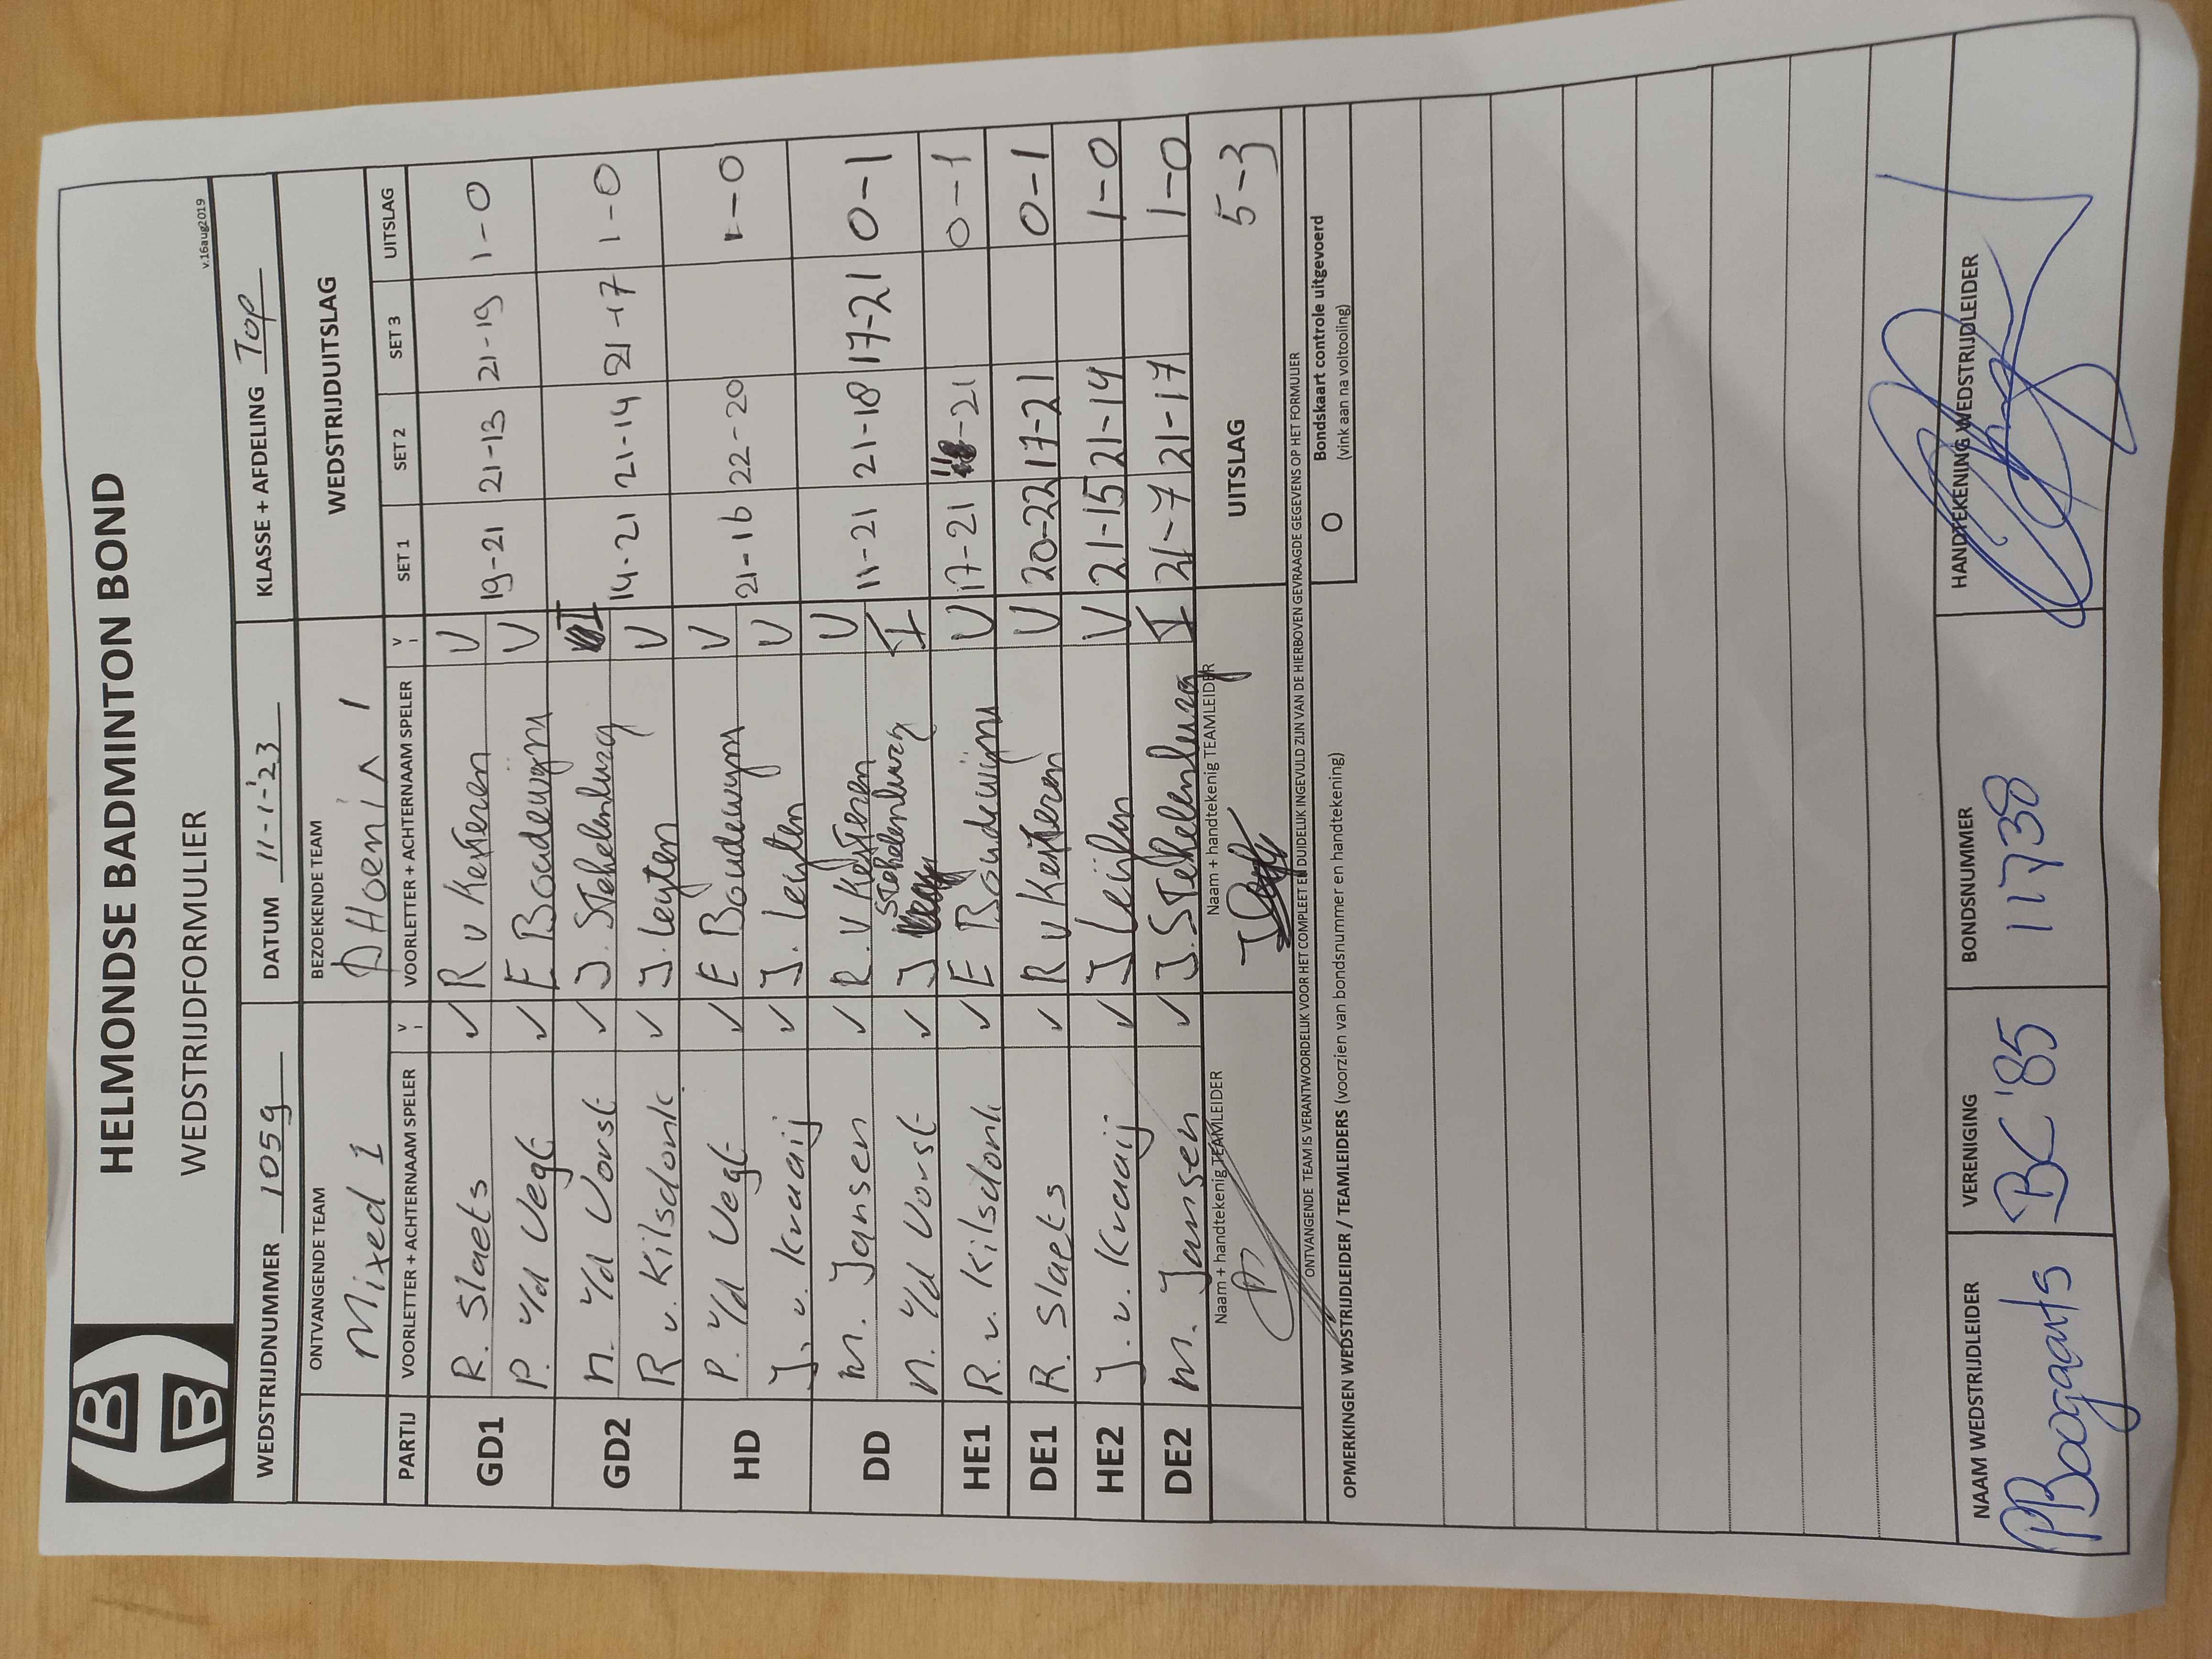 HELMONDSE BADMINTON BOND
WEDSTRIJDFORMULIER
v.16aug2019
WEDSTRIJDNUMMER 1059 DATUM 11-1-'23 KLASSE + AFDELING Top
ONTVANGENDE TEAM BEZOEKENDE TEAM WEDSTRIJDUITSLAG
Mixed 1 PHoeniX 1
PARTIJ VOORLETTER + ACHTERNAAM SPELER V I VOORLETTER + ACHTERNAAM SPELER V I SET 1 SET 2 SET 3 UITSLAG
GD1 R. Slaets ✓ R v Kesteren V 19-21 21-13 21-19 1-0
P. v/d Vegt ✓ E Boudewijns V
GD2 N. v/d Vorst ✓ J. Stekelenburg I 14-21 21-14 21-17 1-0
R v. Kilsdonk ✓ J. Leyten V
HD P. v/d Vegt ✓ E Boudewyns V 21-16 22-20 1-0
J. v. Kraaij ✓ J. Leyten V
DD M. Jansen ✓ R. v Kesteren V 11-21 21-18 17-21 0-1
N. v/d Vorst ✓ J Stekelenburg I
HE1 R. v. Kilsdonk ✓ E Boudewijns V 17-21 11-21 0-1
DE1 R. Slaets ✓ R v Kesteren V 20-22 17-21 0-1
HE2 J. v. Kraaij ✓ J Leijten V 21-15 21-14 1-0
DE2 M. Jansen ✓ J. Stekelenburg I 21-7 21-17 1-0
Naam + handtekenig TEAMLEIDER Naam + handtekenig TEAMLEIDER UITSLAG 5-3
ONTVANGENDE TEAM IS VERANTWOORDELIJK VOOR HET COMPLEET EN DUIDELIJK INGEVULD ZIJN VAN DE HIERBOVEN GEVRAAGDE GEGEVENS OP HET FORMULIER
OPMERKINGEN WEDSTRIJDLEIDER / TEAMLEIDERS (voorzien van bondsnummer en handtekening)
O Bondskaart controle uitgevoerd
(vink aan na voltooiing)
NAAM WEDSTRIJDLEIDER VERENIGING BONDSNUMMER HANDTEKENING WEDSTRIJDLEIDER
P Boogaarts BC '85 11738